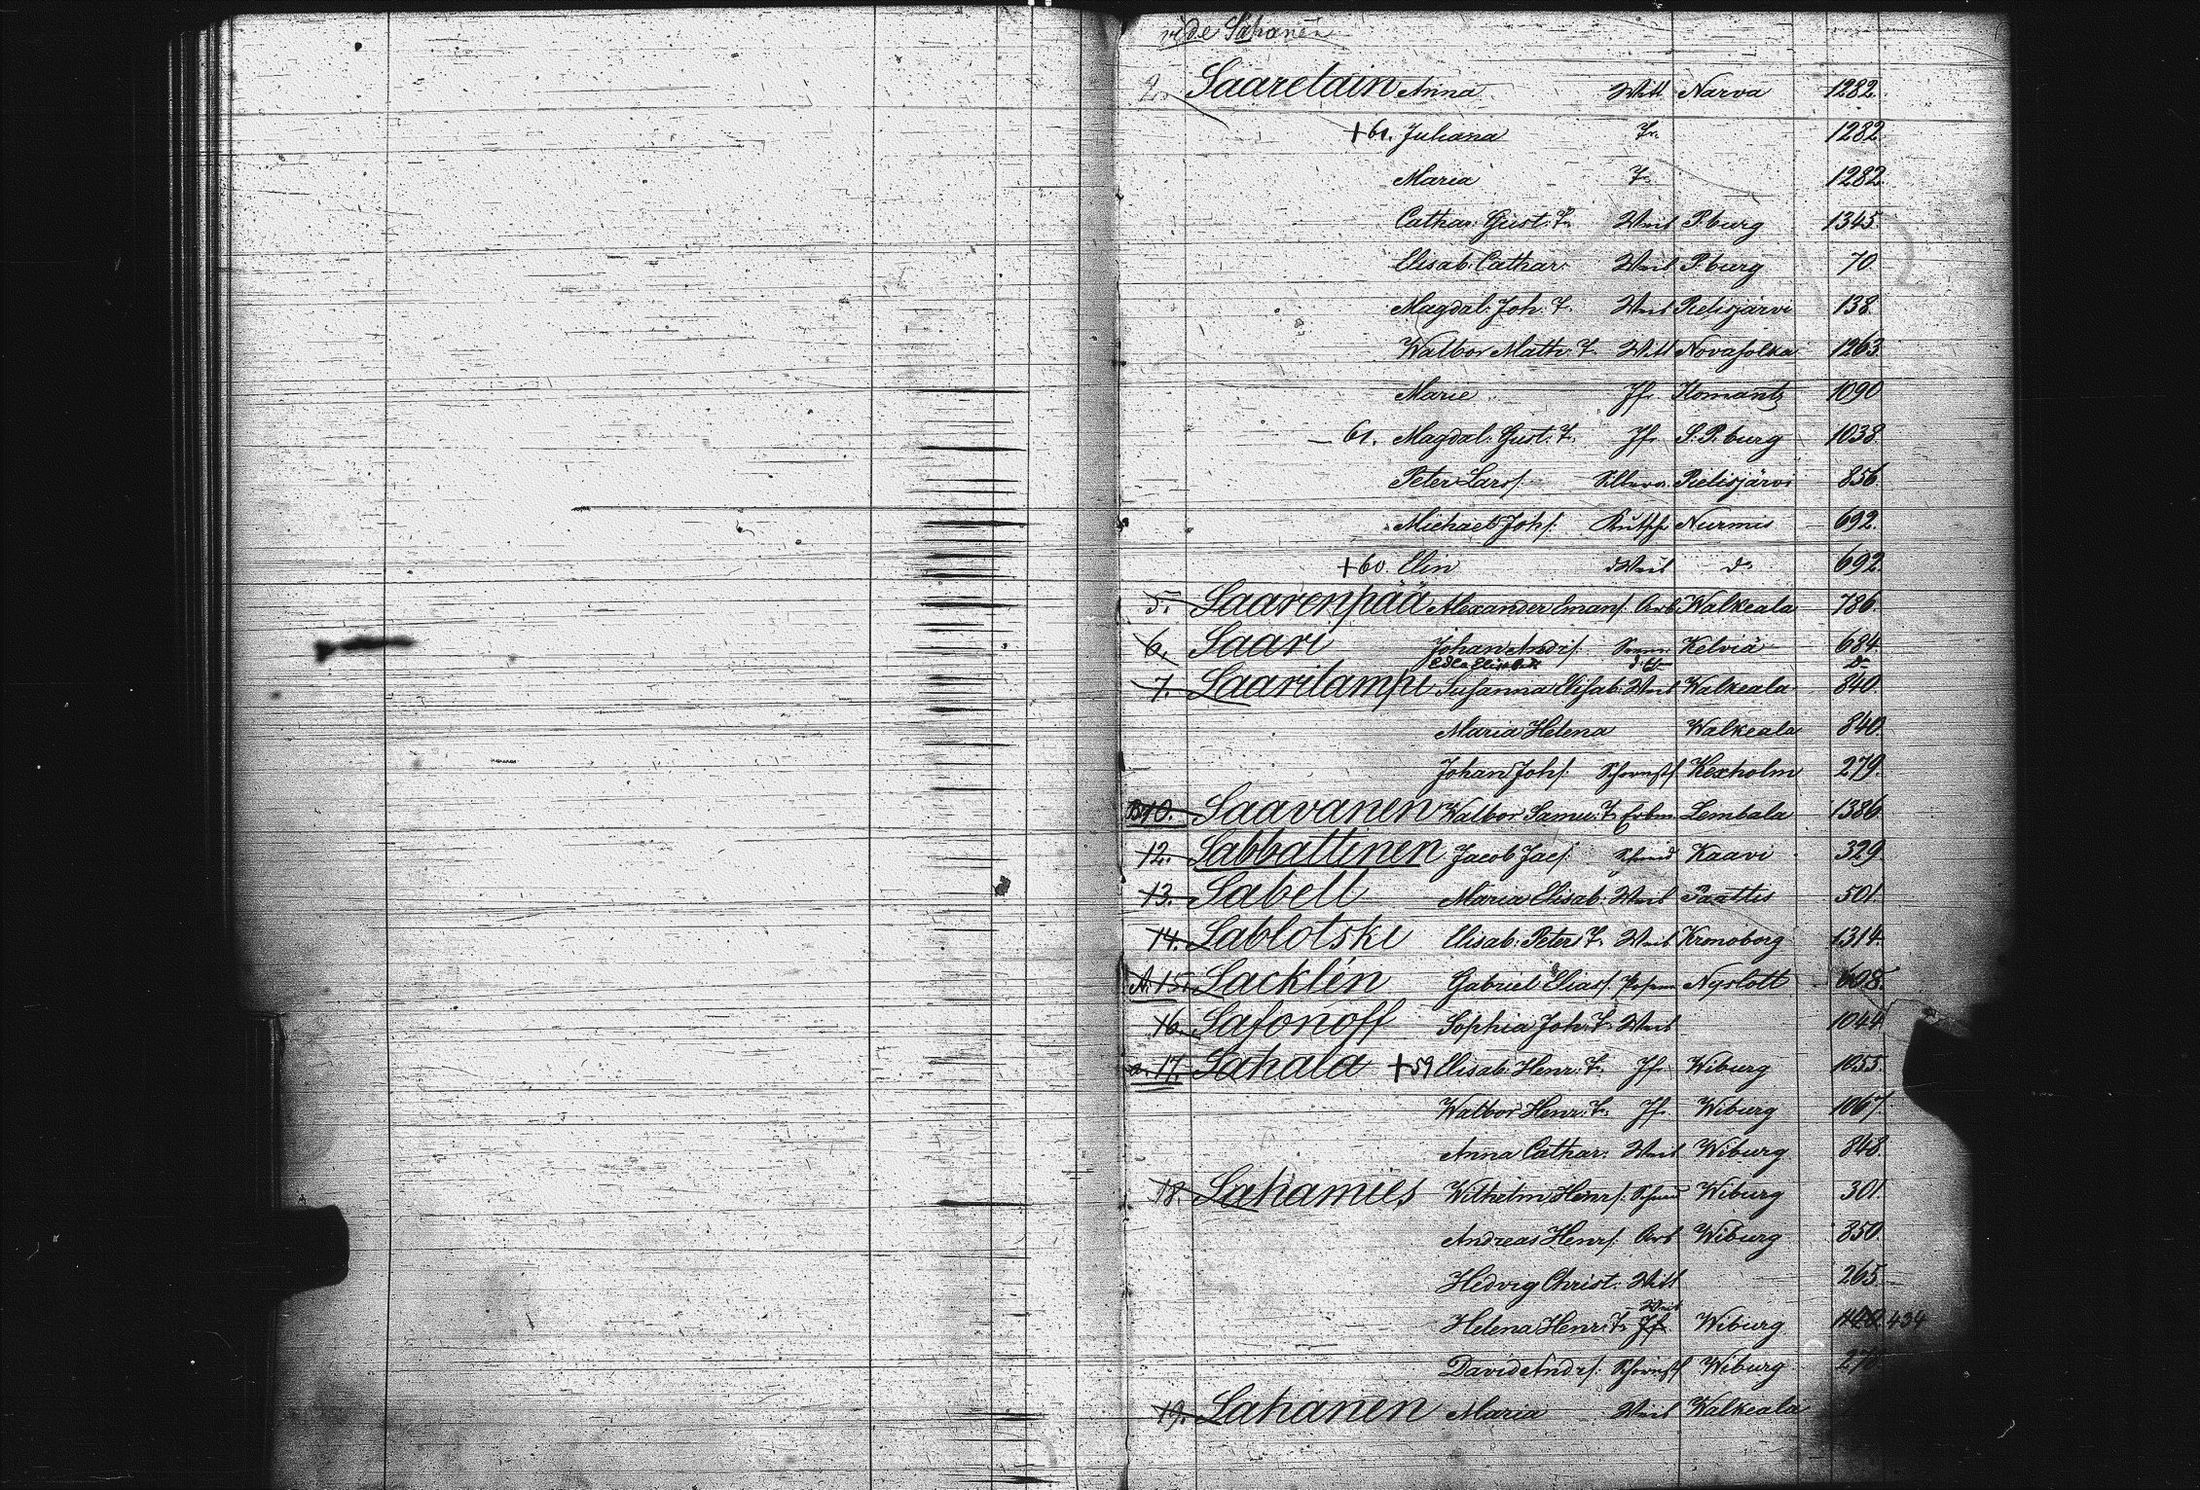 vide Sahanen
2. Saarelain Anna Witt Narva 1282.
+61. Juliana T:r 1282
Maria T:r 1282
Cathar. Gust. T:r Weib P.burg 1345.
Elisab. Cathar. Weib P.burg 70
Magdal. Joh. T. Weib Pielisjärvi 138.
Walbor Math. T. Witt Novasolka 1263
Marie Jf. Ilomantz 1090
61. Magdal. Gust. T. Jf. S.P.burg 1038.
Peter Larsf. Pielisjärvi 856.
Michael Johf. Kutsch. Nurmis 692.
+60. Elin d Weib do 692.
5. Saarenpää Alexander Emanf. Arb. Walkeala 786.
6. Saari Johan Andrf. Kelviä 684.
Edla Elisabet
7. Saarilampi Susanna Elisab. Weib Walkeala 840.
Maria Helena Walkeala 840
Johan Johf. Schornstf Kexholm 279.
B 10. Saavanen Walbor Samu. T. Lembala 1386
12. Sabbattinen Jacob Jacf. Schmid Kaavi 329
13. Sabell Maria Elisab. Weib Paattis 501.
14. Sablotski Elisab. Peter T. Weib Kronoborg 1314.
A. 15. Sacklén Gabriel Eliasf. Nyslott 608.
16. Safonoff Sophia Joh. T. Weib 1044
a. 17. Sahala +59 Elisab. Henr. T. Jf. Wiburg 1055.
Walbor Henr. T. Jf. Wiburg 1067.
Anna Cathar. Weib Wiburg 848.
18. Sahamies Wilhelm Henrf. Schmid Wiburg 301.
Andreas Henrf. Arb Wiburg 350.
Hedvig Christ. Witt 265.
Weib
Helena Henr. T. Jf Wiburg 1140. 434
David Andrf. Schornstf Wiburg 278.
19. Sahanen Maria Weib Walkeala